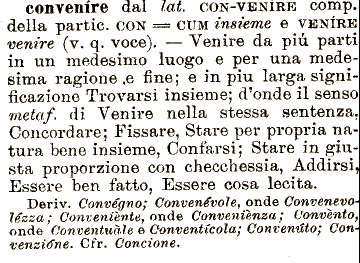 convenire dal lat. CON-VENÍRE comp.
della partic. CON = CUM insieme e VENÍRE
venire (v. q. voce). — Venire da piú parti
in un medesimo luogo e per una mede-
sima ragione e fine; e in piu larga signi-
ficazione Trovarsi insieme; d'onde il senso
metaf. di Venire nella stessa sentenza,
Concordare; Fissare, Stare per propria na-
tura bene insieme, Confarsi; Stare in giu-
sta proporzione con checchessia, Addirsi,
Essere ben fatto, Essere cosa lecita.
Deriv. Convégno; Convenévole, onde Convenevo-
lézza; Conveniènte, onde Conveniènza; Convènto,
onde Conventuàle e Conventícola; Convenúto; Con-
venzióne. Cfr. Concione.